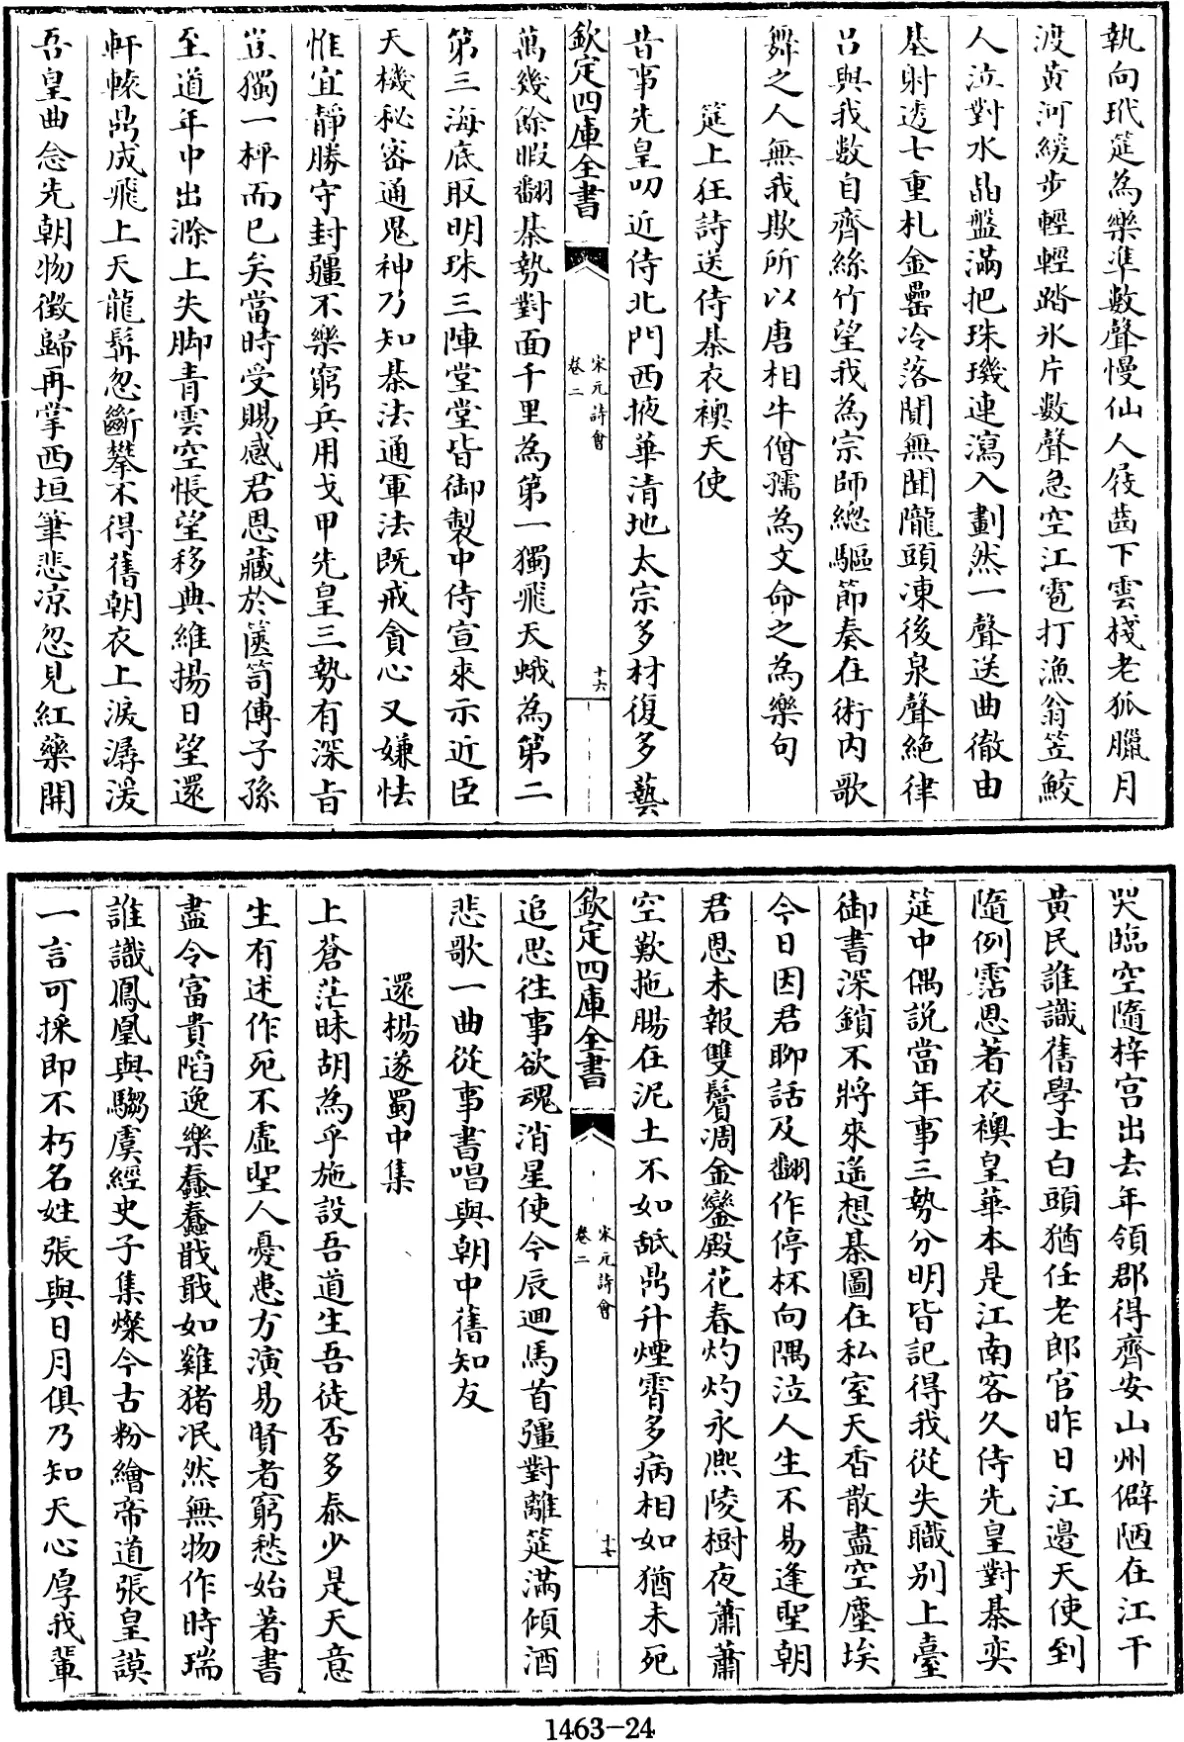 執向玳筵為樂凖數聲慢仙人屐齒下雲棧老狐臘月
渡黄河緩步輕輕踏氷片數聲急空江雹打漁翁笠鮫
人泣對水晶盤滿把珠璣連瀉入劃然一聲送曲徹由
基射透七重札金罍冷落閴無聞隴頭凍後泉聲絶律
吕與我數自齊絲竹望我為宗師總驅節奏在術内歌
舞之人無我欺所以唐相牛僧孺為文命之為樂句
筵上狂詩送侍棊衣襖天使
昔事先皇叨近侍北門西掖華清地太宗多材復多藝
欽定四庫全書
宋元詩會
卷二
十六
萬幾餘暇翻棊勢對面千里為第一獨飛天蛾為第二
第三海底取明珠三陣堂堂皆御製中侍宣來示近臣
天機秘宻通鬼神乃知棊法通軍法既戒貪心又嫌怯
惟宜静勝守封疆不樂窮兵用戈甲先皇三勢有深㫖
豈獨一枰而已矣當時受賜感君恩藏於篋笥傳子孫
至道年中出滁上失脚青雲空悵望移典維揚日望還
軒轅鼎成飛上天龍髯忽斷攀不得舊朝衣上淚潺湲
吾皇曲念先朝物徴歸再掌西垣筆悲凉忽見紅藥開
哭臨空隨梓宫出去年領郡得齊安山州僻陋在江干
黄民誰識舊學士白頭猶任老郎官昨日江邉天使到
隨例霑恩著衣襖皇華本是江南客久侍先皇對棊奕
筵中偶説當年事三勢分明皆記得我從失職别上臺
御書深鎖不將來遥想棊圖在私室天香散盡空塵埃
今日因君聊話及翻作停杯向隅泣人生不易逢聖朝
君恩未報雙鬢凋金鑾殿花春灼灼永熙陵樹夜蕭蕭
空歎拖腸在泥土不如舐鼎升煙霄多病相如猶未死
欽定四庫全書
宋元詩會
卷二
十七
追思徃事欲魂消星使今辰迴馬首彊對離筵滿傾酒
悲歌一曲從事書唱與朝中舊知友
還楊遂蜀中集
上蒼茫昧胡為乎施設吾道生吾徒否多泰少是天意
生有述作死不虚聖人憂患方演易賢者窮愁始著書
盡令富貴䧟逸樂蠢蠢戢戢如雞猪泯然無物作時瑞
誰識鳳凰與騶虞經史子集燦今古粉繪帝道張皇謨
一言可採即不朽名姓張與日月俱乃知天心厚我輩
1463-24